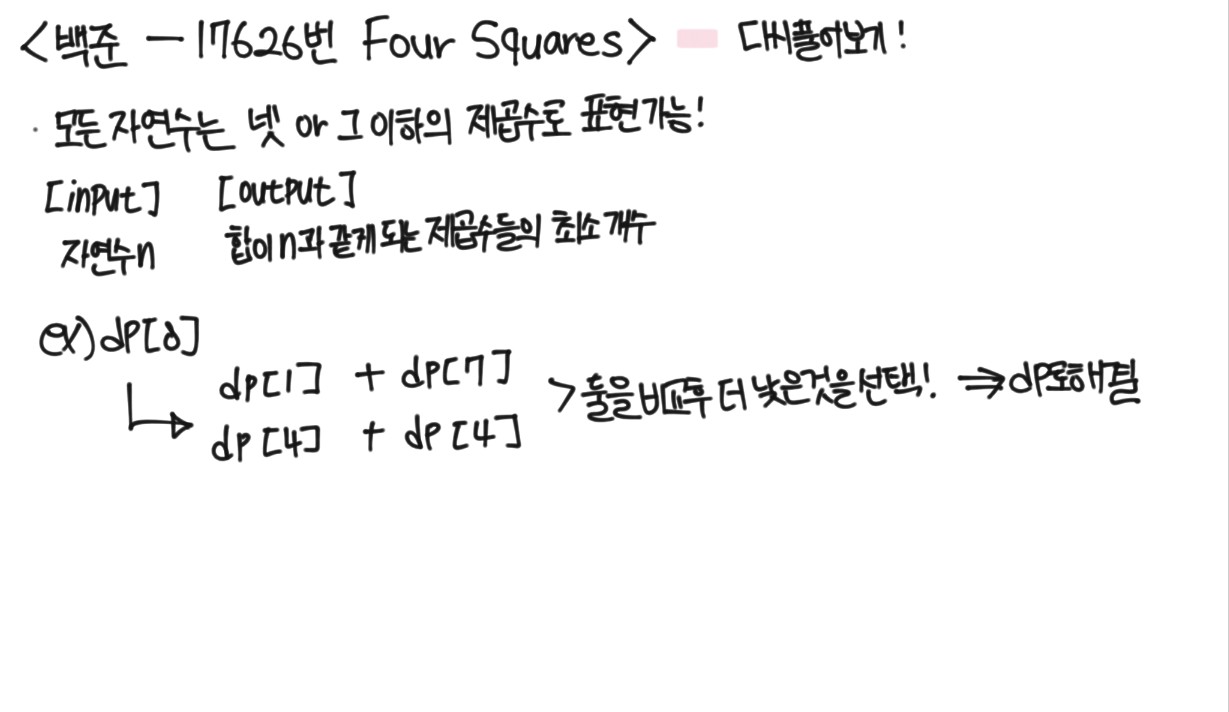 <백준 - 17626번 Four Squares> 다시풀어보기!
· 모든 자연수는 넷 or 그 이하의 제곱수로 표현가능!
[input] [output]
자연수n 합이 n과 같게 되는 제곱수들의 최소 개수
ex) dp[8]
dp[1] + dp[7]
> 둘을 비교후 더 낮은것을 선택! ⇒ dp로해결
dp[4] + dp[4]